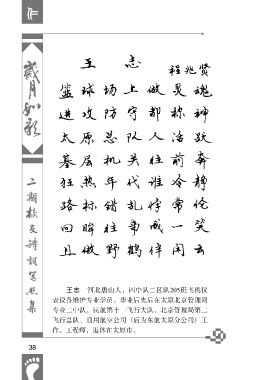 作
岁月如歌
二期校友诗词写照集
王 志
程兆贤
篮球场上做灵魂
进攻防守都称神
太原总队人活跃
基层机关任前奔
狂热年代谁冷静
路标错乱悖常伦
回眸往事成一笑
且做野鹤伴闲云
王志 河北唐山人，四中队二区队205班飞机仪
表设备维护专业学员。毕业后先后在太原北京管理局
专业三中队，民航第十一飞行大队，北京管理局第二
飞行总队、通用航空公司（后为东航太原分公司）工
作。工程师，退休在太原市。
38